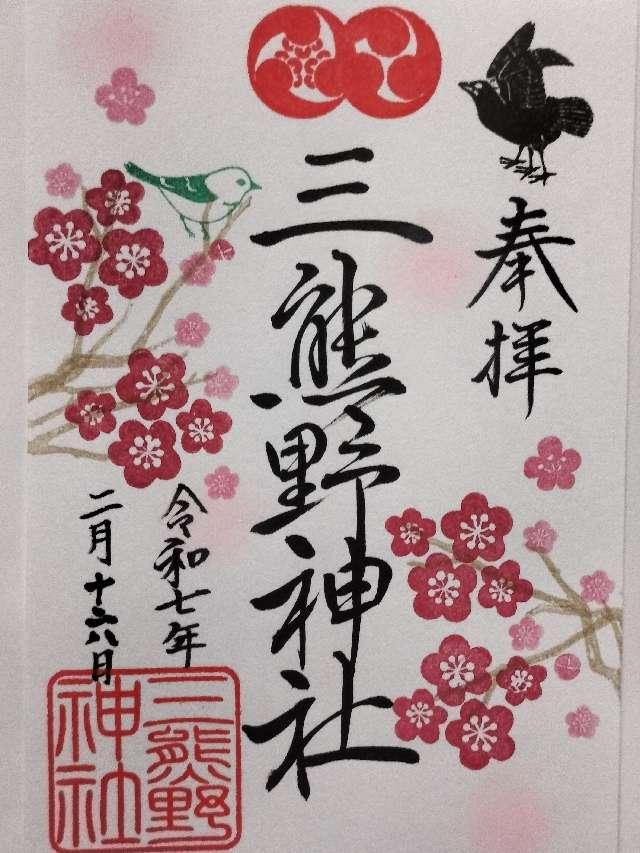 奉拝
三熊野神社
令和七年
二月十六日
三熊野
神社